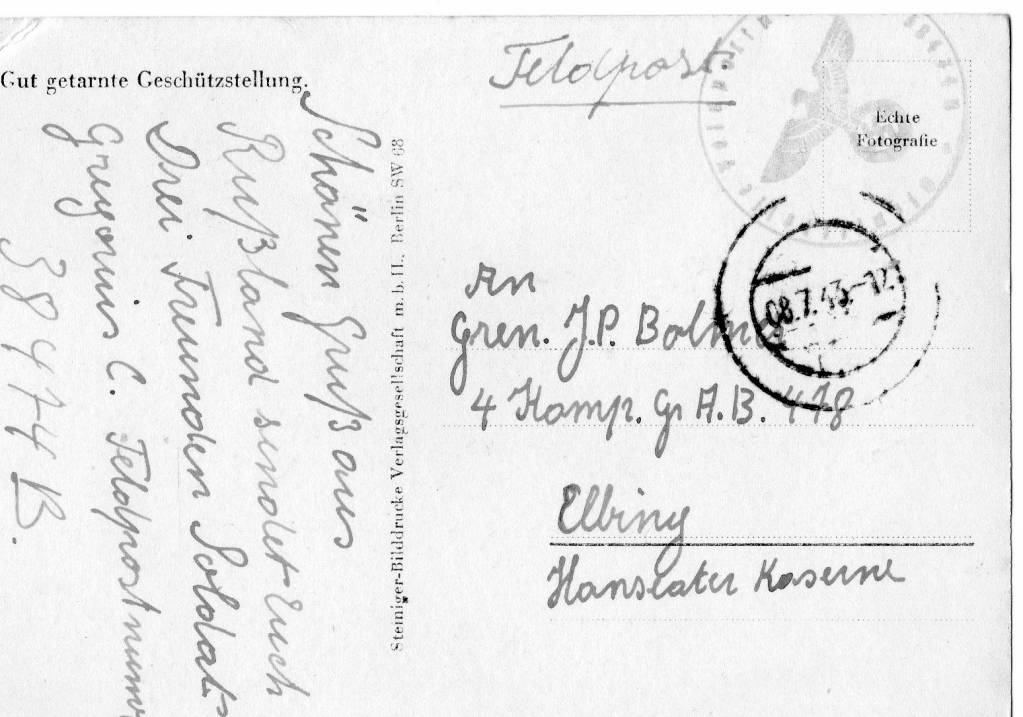 Gut getarnte Geschützstellung.
Schönen Gruß aus
Rußland sendet Euch
Drei Freunden Soldat
Gregorius C. Feldpostnumm
38474 B.
Steiniger-Bilddrucke Verlagsgesellschaft m.b.H., Berlin SW 68
Feldpost.
Echte
Fotografie
08.7.43-12
An
Gren. J.P.
4 Komp. Gr A.B. 478
Elbing
Hanseaten Kaserne